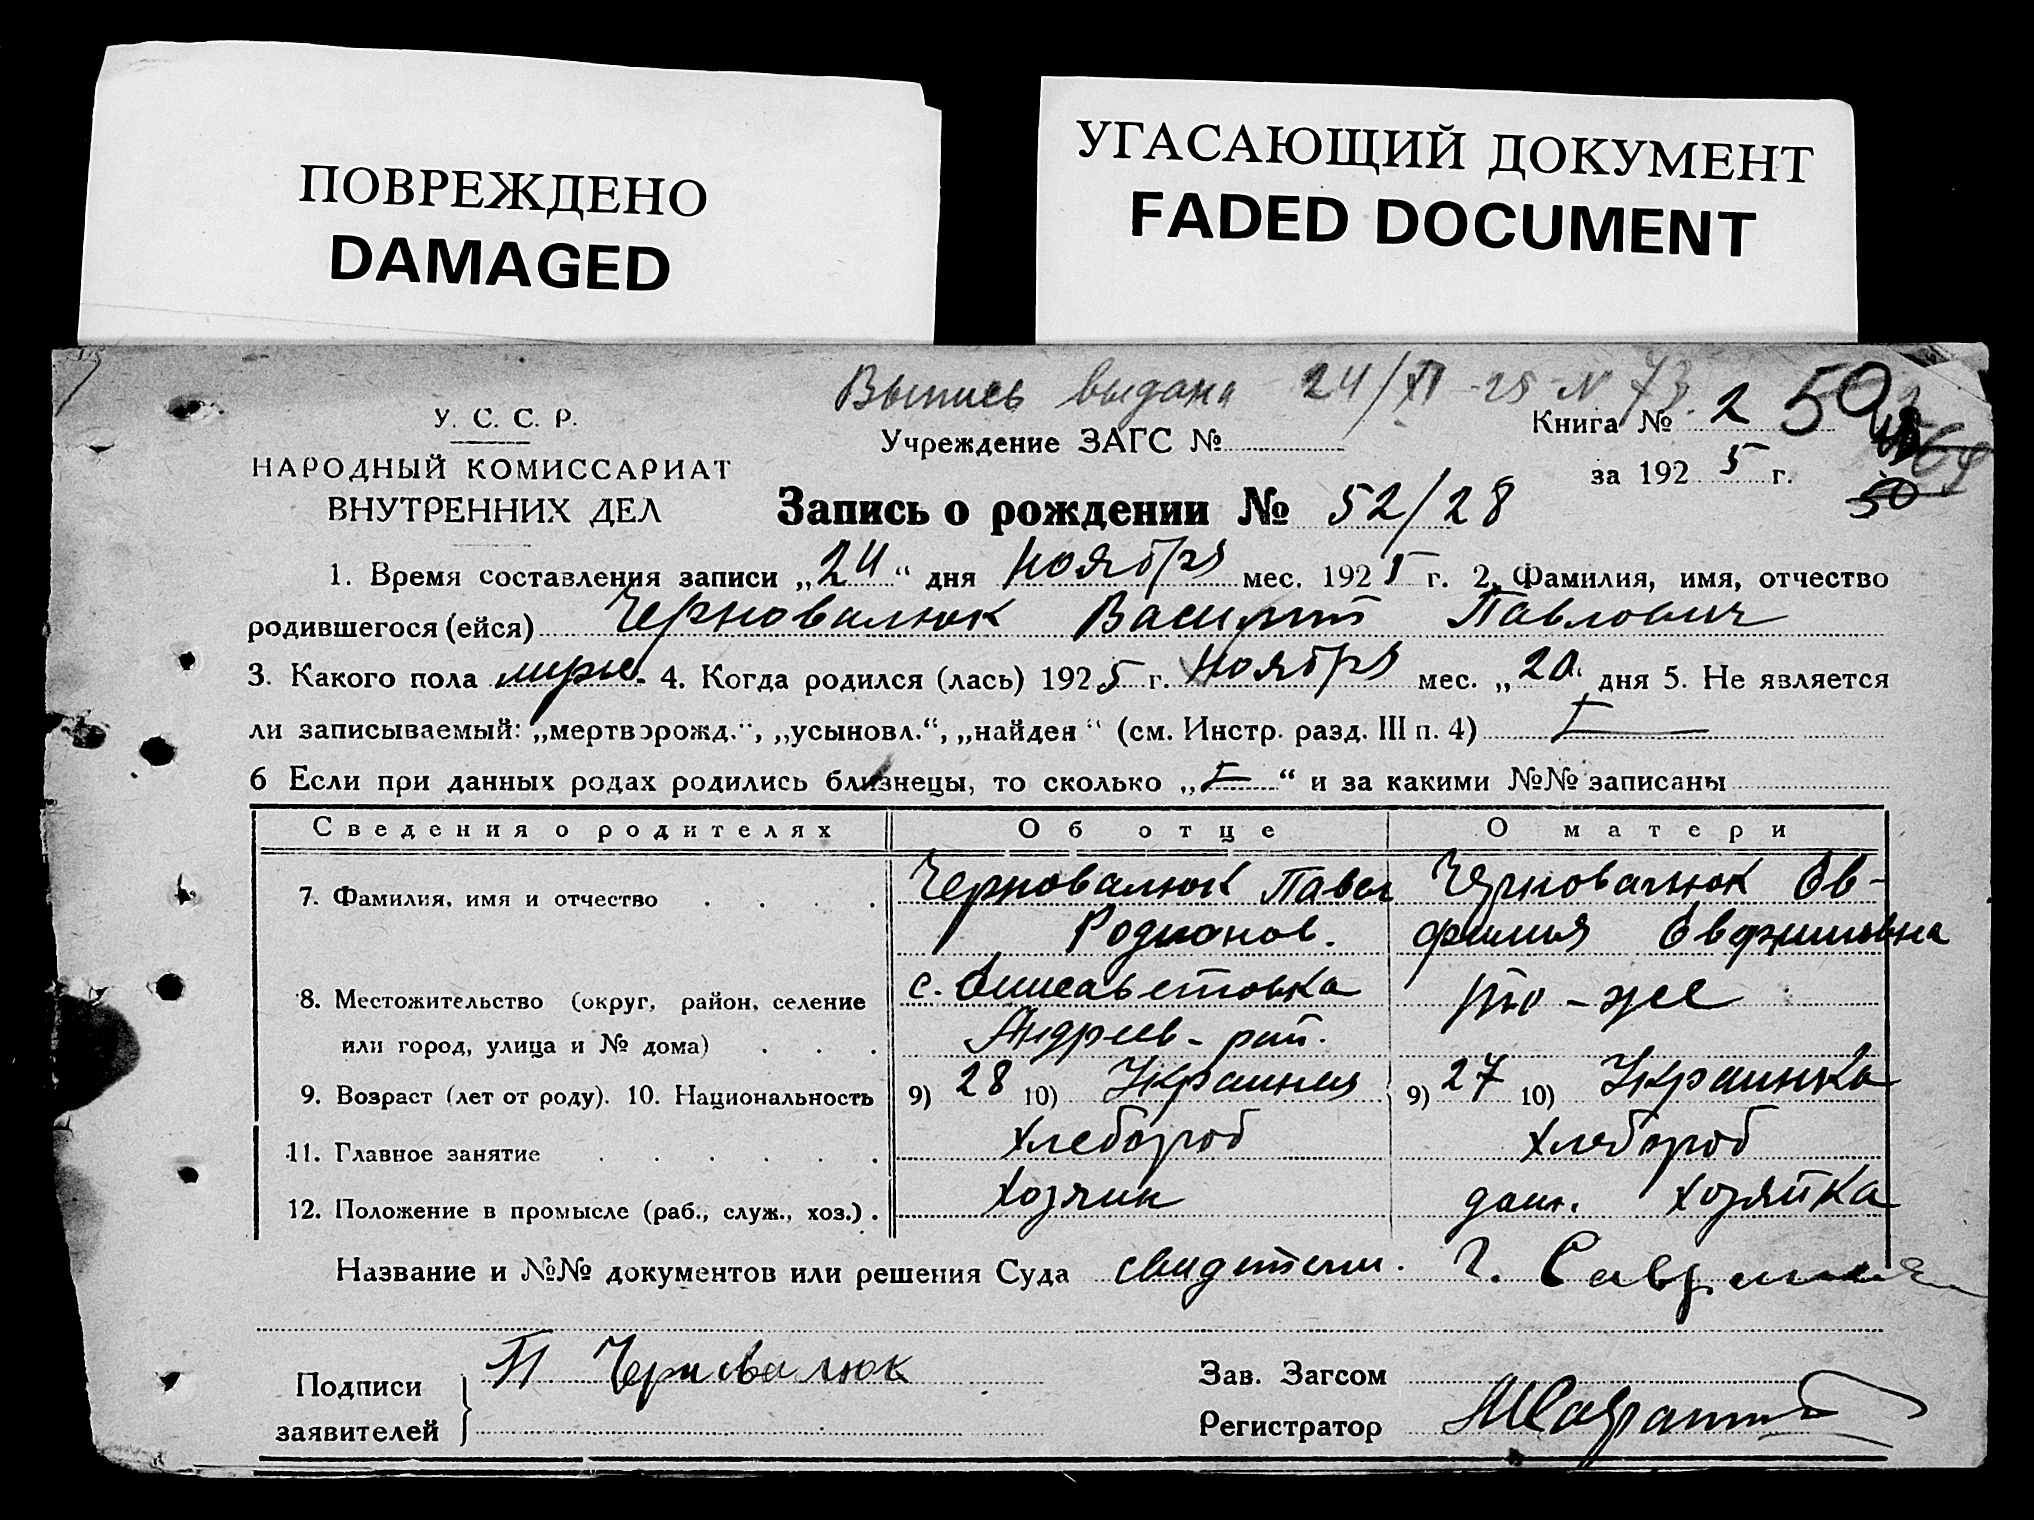 ПОВРЕЖДЕНО
DAMAGED
УГАСАЮЩИЙ ДОКУМЕНТ
FADED DOCUMENT
Выпись выдана 24/XI-25 N 73
У. С. С. Р.
НАРОДНЫЙ КОМИССАРИАТ
ВНУТРЕННИХ ДЕЛ
Учреждение ЗАГС №
Книга № 2 50
за 192 5 г.
50
Запись о рождении № 52/28
1. Время составления записи „24“ дня ноября мес. 192 5 г. 2. Фамилия, имя, отчество
родившегося (ейся) Черновалюк Василий Павлович
3. Какого пола 4. Когда родился (лась) 192 5 г. Ноября мес. „20“ дня 5. Не является
ли записываемый: „мертворожд.“, „усыновл.“, „найден“ (см. Инстр. разд. III п. 4)
6 Если при данных родах родились близнецы, то сколько „ “ и за какими №№ записаны
Сведения о родителях Об отце О матери
7. Фамилия, имя и отчество . . . . Черновалюк Павел Черновалюк Ев-
Родионов. фимия
8. Местожительство (округ, район, селение с. Елисаветовка то-же
или город, улица и № дома) . . . Андреев-рай.
9. Возраст (лет от роду). 10. Национальность 9) 28 10) 9) 27 10) Украинка
11. Главное занятие . . . . . . Хлебороб Хлебороб
12. Положение в промысле (раб., служ., хоз.) . Хозяин дом. хозяйка
Название и №№ документов или решения Суда свидетели. Г.
Подписи
заявителей
П Черновалюк
Зав. Загсом
Регистратор